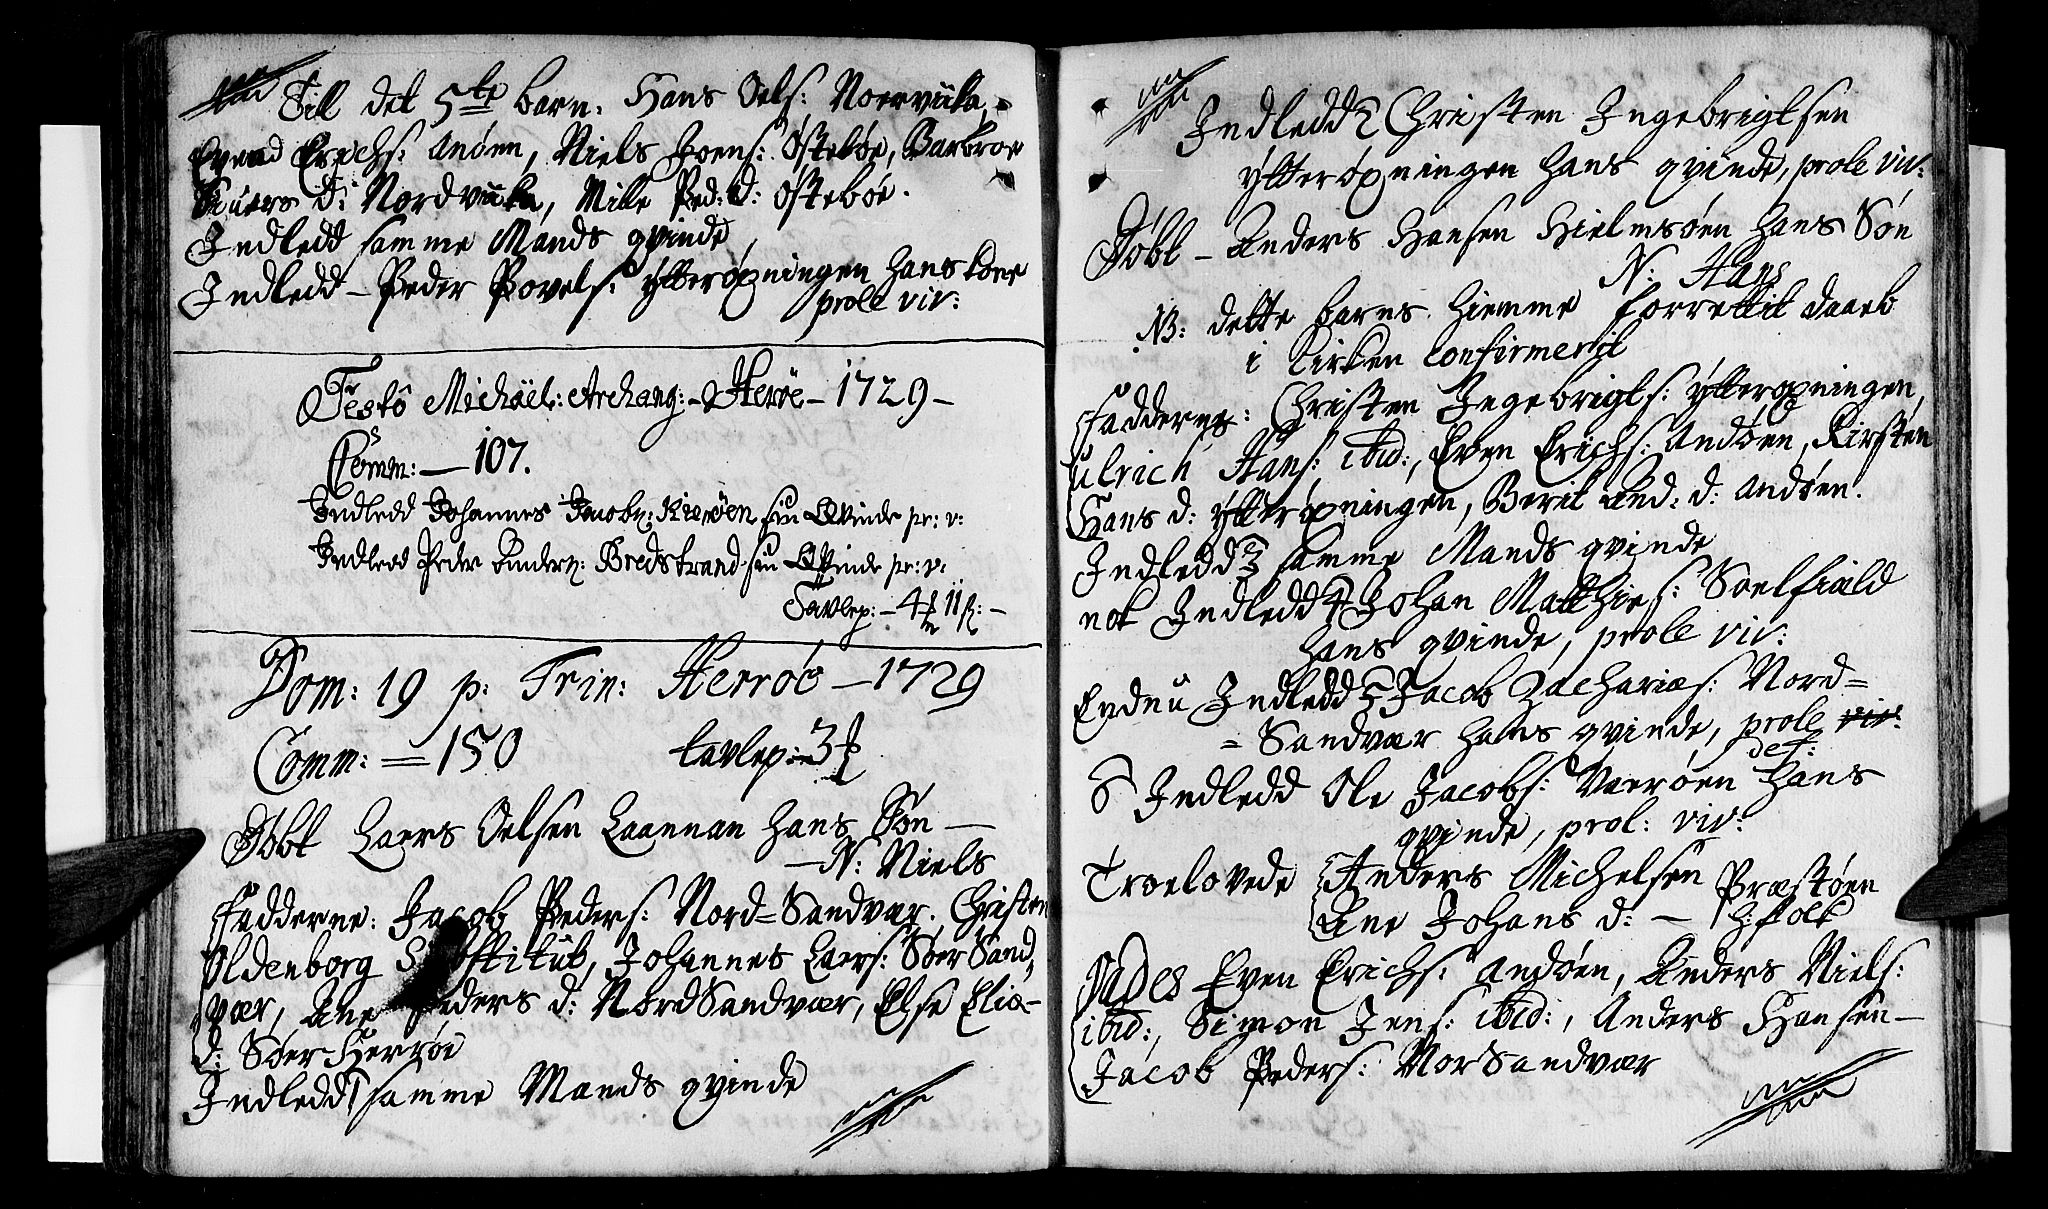 Till det 5te barn. Hans Oels: Noerviika,
Evend Erichs: Anöen, Niels Joens: Östeböe, Barbroe
Siuers d: Nordviika, Mille Ped: d: Östeböe.
Indledd samme Mands qvinde,
Indledd – Peder Povels: ÿtteröpningen hans kone
prole viv:
Festô Michäel: Archang: – Herröe – 1729 –
Comm: – 107.
Indledd Johannes Jacobs: Kierröen sin Qvinde pr: v:
Indledd Peder Anders: Bredstrand sin Qvinde pr: v:
Tavlep: – 4 11 ß: –
Dom: 19 p: Trin: Herröe – 1729
Comm: = 150 tavlep: 3
Döbt Laers Oelsen Laannan hans Sön –
– N: Niels
Fadderne: Jacob Peders: Nord=Sandvær. Christen
Oldenborg Substitut, Johannes Laers: SöerSand,
vær, Ane Peders d: NordSandvær, Else Eliæ-
d: Söer-Herröe
Indledd 1 samme Mands qvinde
Indledd 2 Christen Ingebrigtsen
ÿtteröpningen hans qvinde, prole viv:
Döbt – Anders Hansen Hielmsöen hans Sön
N: Hans
NB: dette barns hiemme forrettit daab
i Kirken confirmerit
Fadderne: Christen Ingebrigts: ÿtteröpningen,
Ulrich Hans: ibid:, Even Erichs: Andöen, Kirsten
Hans d: ÿtteröpningen, Berit And: d: Andöen.
Indledd 3 samme Mands qvinde
nok Indledd 4 Johan Matthies: Soelfiæld
hans qvinde, prole viv:
Endnu Indledd 5 Jacob Zachariæs: Nord=
= Sandvær hans qvinde, prole viv:
def:
6 Indledd Ole Jacobs: Væröen hans
qvinde, prol: viv:
Troelovede Anders Michelsen Præstöen
Ane Johans d: – h: folk
Vades Even Erichs: Andöen, Anders Niels:
ibid:, Simon Jens: ibid:, Anders Hansen –
Jacob Peders: NorSandvær